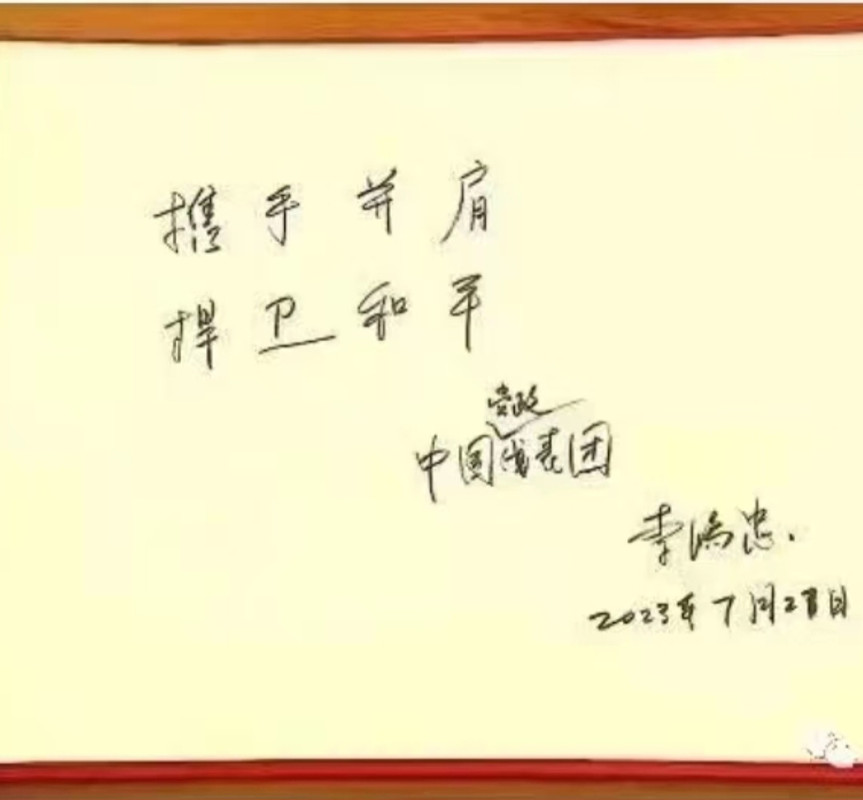 携手并肩
捍卫和平
党政
中国代表团
李鸿忠.
2023年7月28日